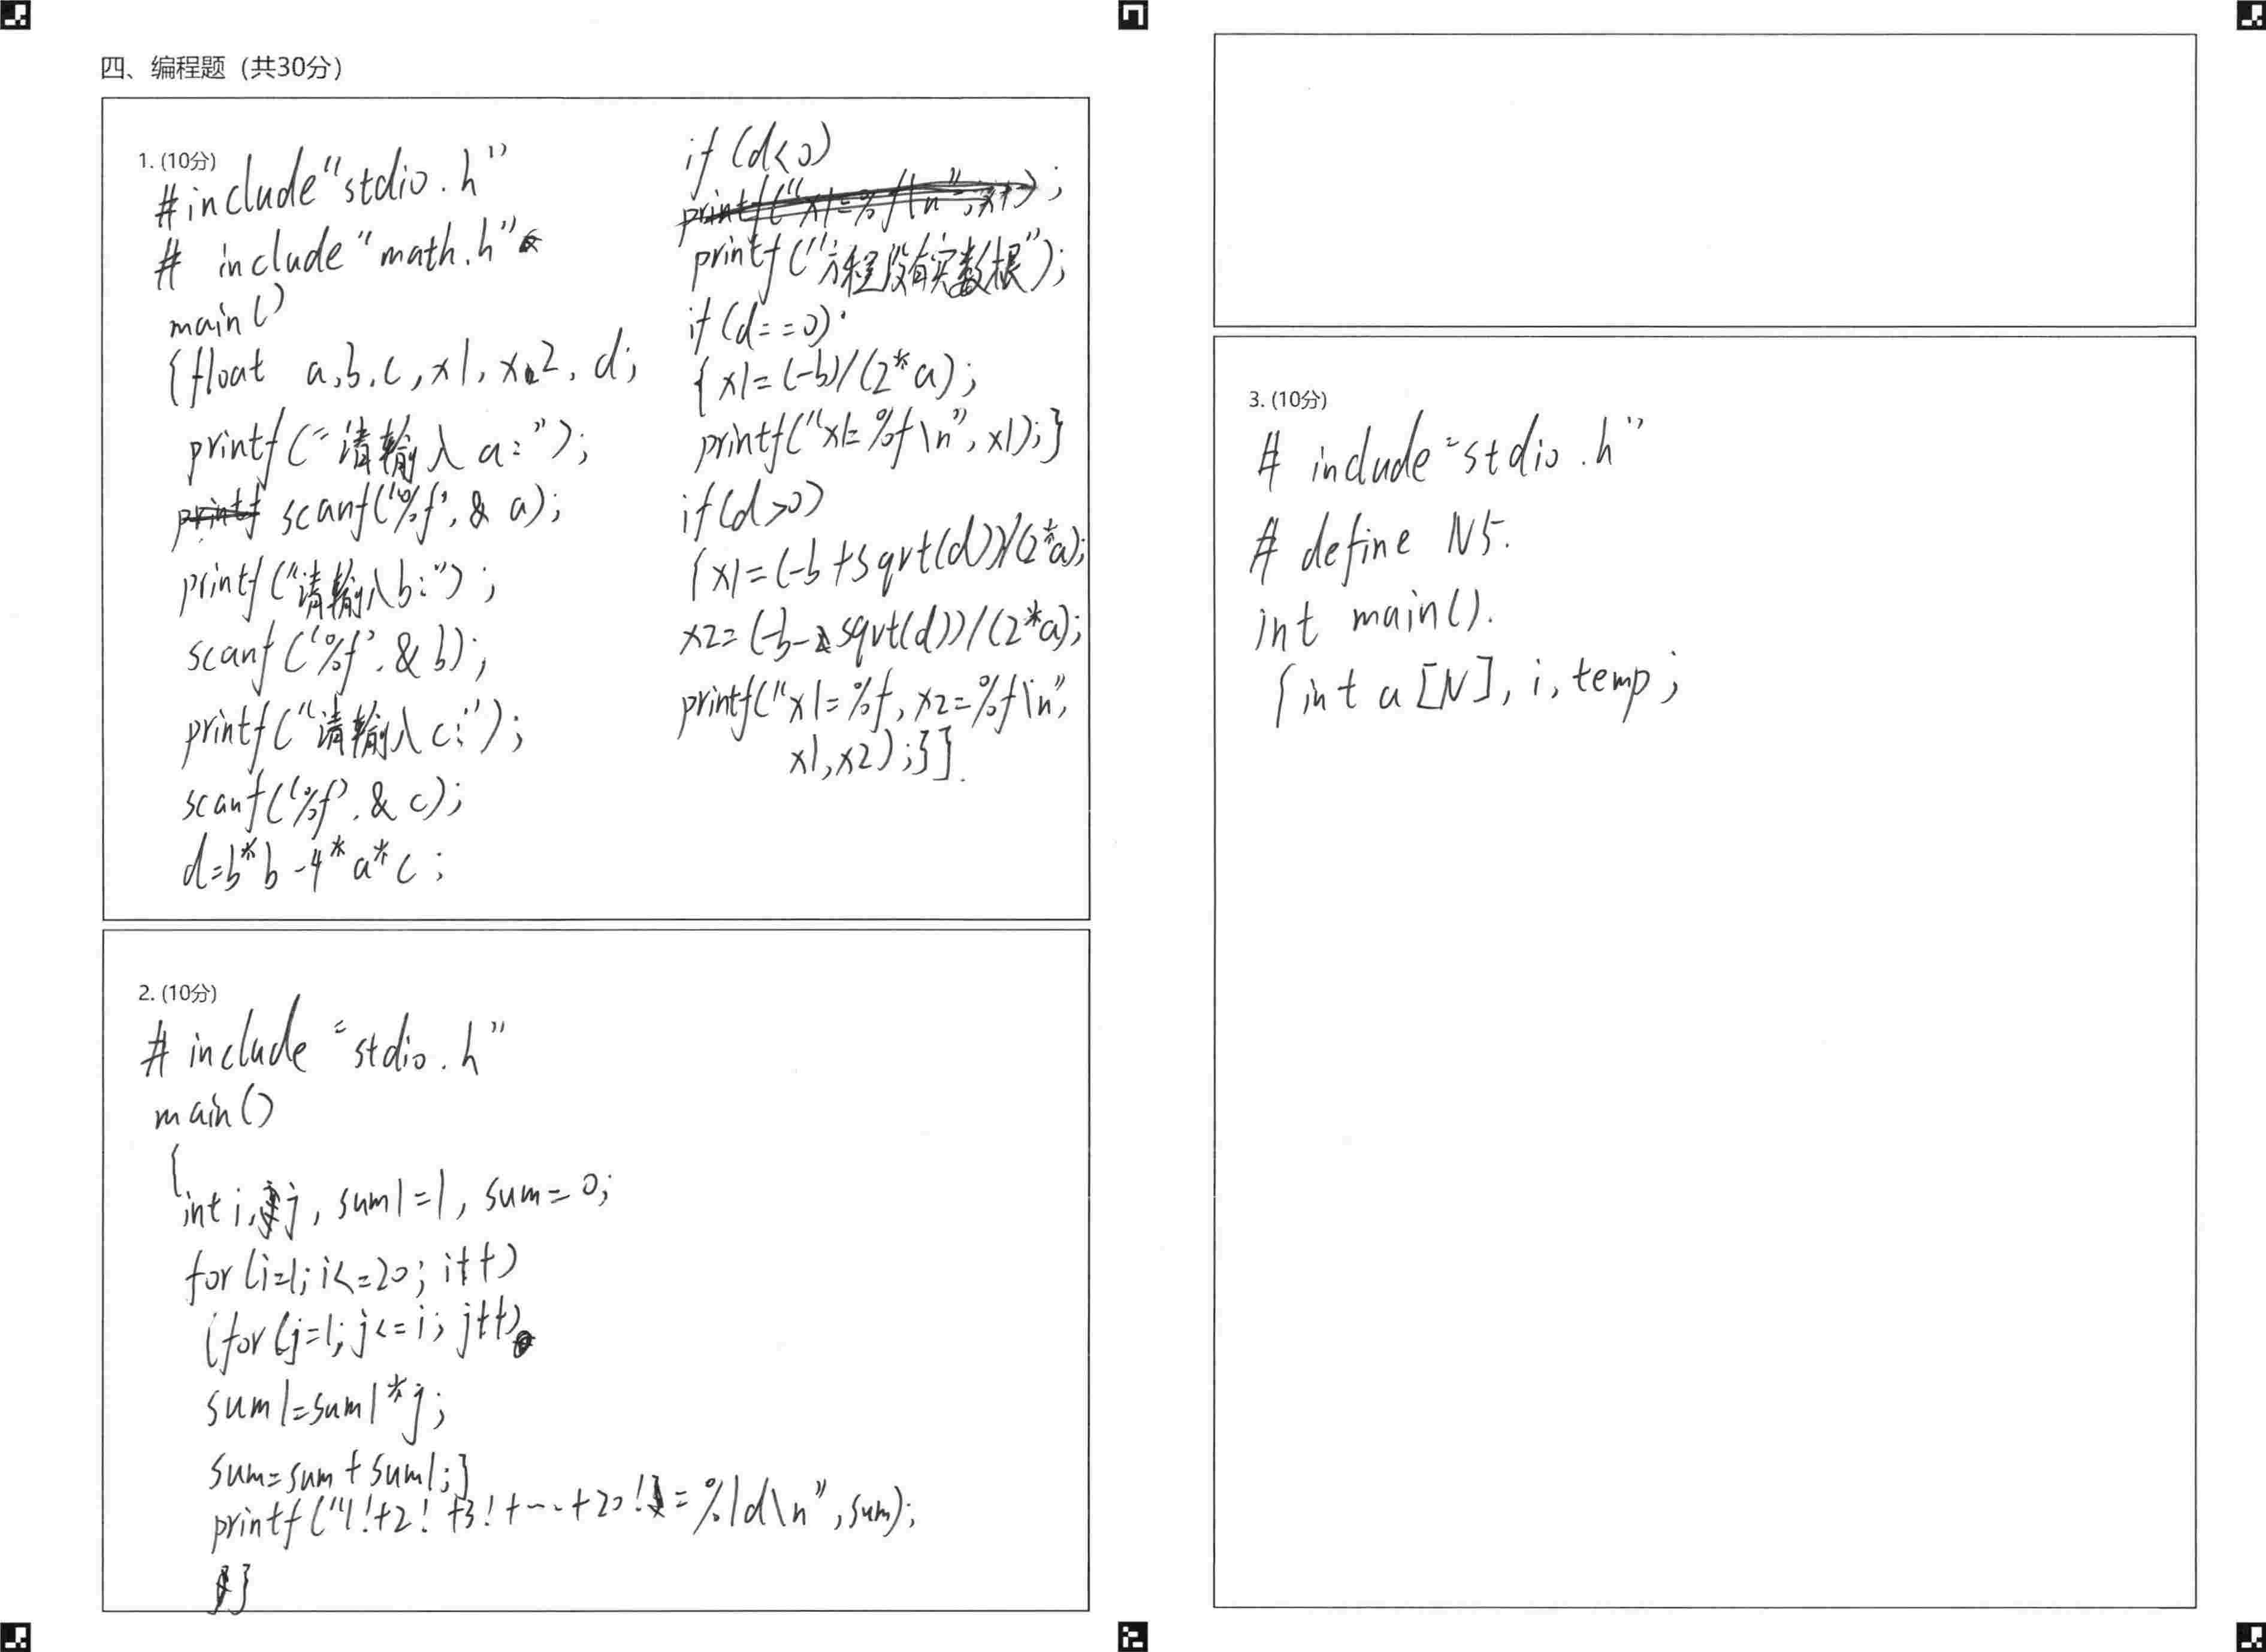 四、编程题（共30分）
1. (10分)
#include"stdio.h"
# include"math.h"
main()
{float a,b,c,x1,x2,d;
printf("请输入a:");
scanf("%f",& a);
printf("请输入b:");
scanf("%f",& b);
printf("请输入c:");
scanf("%f",& c);
d=b*b-4*a*c;
if(d<0)
printf("x1=%f\n",x1);
printf("方程没有实数根");
if(d==0)
{x1=(-b)/(2*a);
printf("x1=%f\n",x1);}
if(d>0)
{x1=(-b+sqrt(d))/(2*a);
x2=(-b-sqrt(d))/(2*a);
printf("x1=%f,x2=%f\n",
x1,x2);}}
2. (10分)
# include "stdio.h"
main()
{
int i,j,sum1=1,sum=0;
for(i=1;i<=20;i++)
{for(j=1;j<=i;j++)
sum1=sum1*j;
sum=sum+sum1;}
printf("1!+2!+3!+……+20!=%ld\n",sum);
}
3. (10分)
# include "stdio.h"
# define N5.
int main().
{int a[N],i,temp;